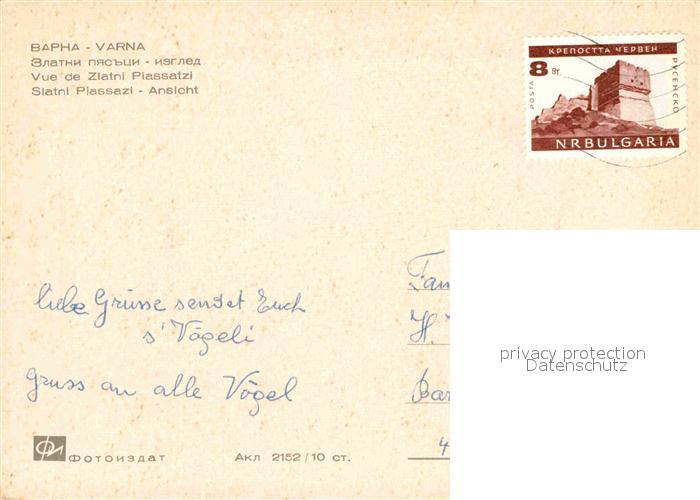 ВАРНА - VARNA
Златни пясъци - изглед
Vue de Zlatni Piassatzi
Slatni Piassazi - Ansicht
КРЕПОСТТА ЧЕРВЕН
8 ст.
ПОСТА
РУСЕНСКО
NRBULGARIA
liebe Grüsse sendet Euch
s'Vögeli
Gruss an alle Vögel
Fam
H.
Bar
4
privacy protection
Datenschutz
ФИ Фотоиздат
Акл 2152/10 ст.